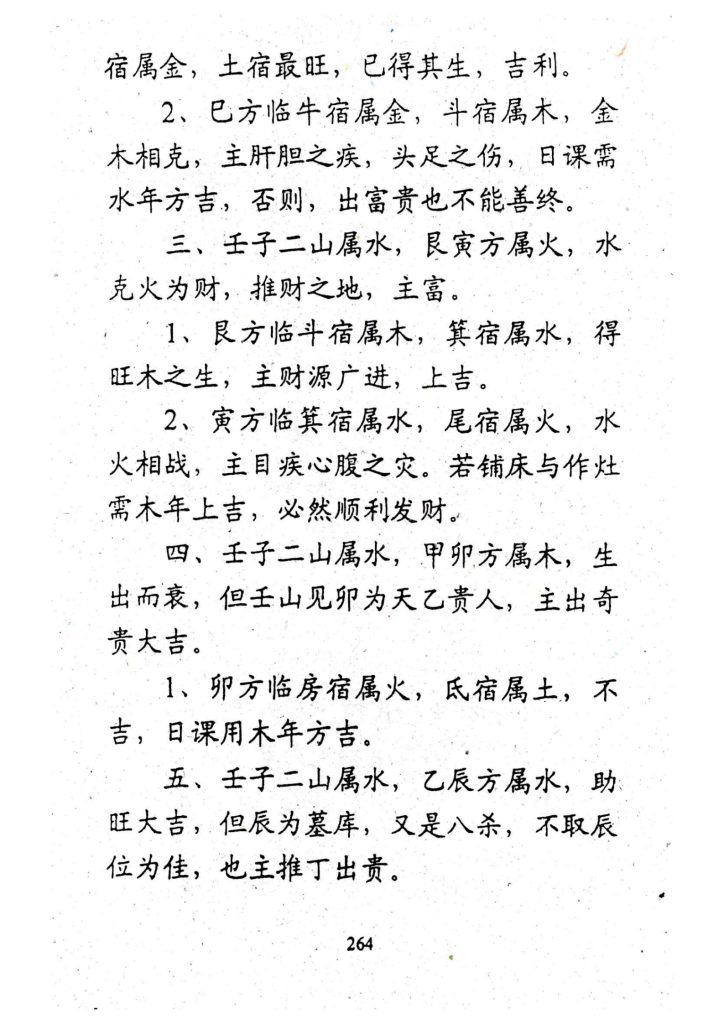 宿属金，土宿最旺，已得其生，吉利。
2、巳方临牛宿属金，斗宿属木，金
木相克，主肝胆之疾，头足之伤，日课需
水年方吉，否则，出富贵也不能善终。
三、壬子二山属水，艮寅方属火，水
克火为财，推财之地，主富。
1、艮方临斗宿属木，箕宿属水，得
旺木之生，主财源广进，上吉。
2、寅方临箕宿属水，尾宿属火，水
火相战，主目疾心腹之灾。若铺床与作灶
需木年上吉，必然顺利发财。
四、壬子二山属水，甲卯方属木，生
出而衰，但壬山见卯为天乙贵人，主出奇
贵大吉。
1、卯方临房宿属火，氐宿属土，不
吉，日课用木年方吉。
五、壬子二山属水，乙辰方属水，助
旺大吉，但辰为墓库，又是八杀，不取辰
位为佳，也主推丁出贵。
264